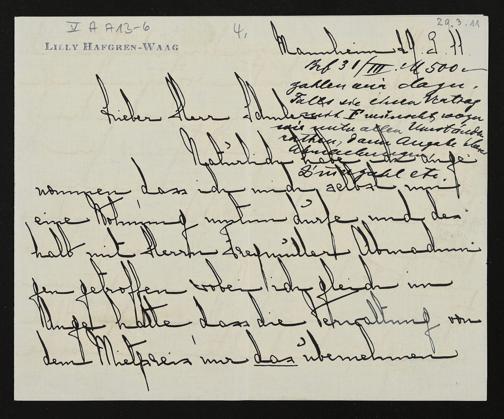 V A A 13-6
4.
29.3.11
LILLY HAFGREN-WAAG
Mannheim 29. 3. 11
Brf 31/III. M 500
zahlen wir dazu.
Falls sie einen Vertrag
wir unter allen Umständen
dann Angabe
etc.
Lieber Herr
Natürlich habe
nommen dass ich mich selbst um
eine Wohnung mühen dürfe und des
halb mit Herrn Abmachun
gen getroffen wobei ich gleich im
Auge hatte dass die Verwaltung von
dem Mietpreis nur das übernehmen